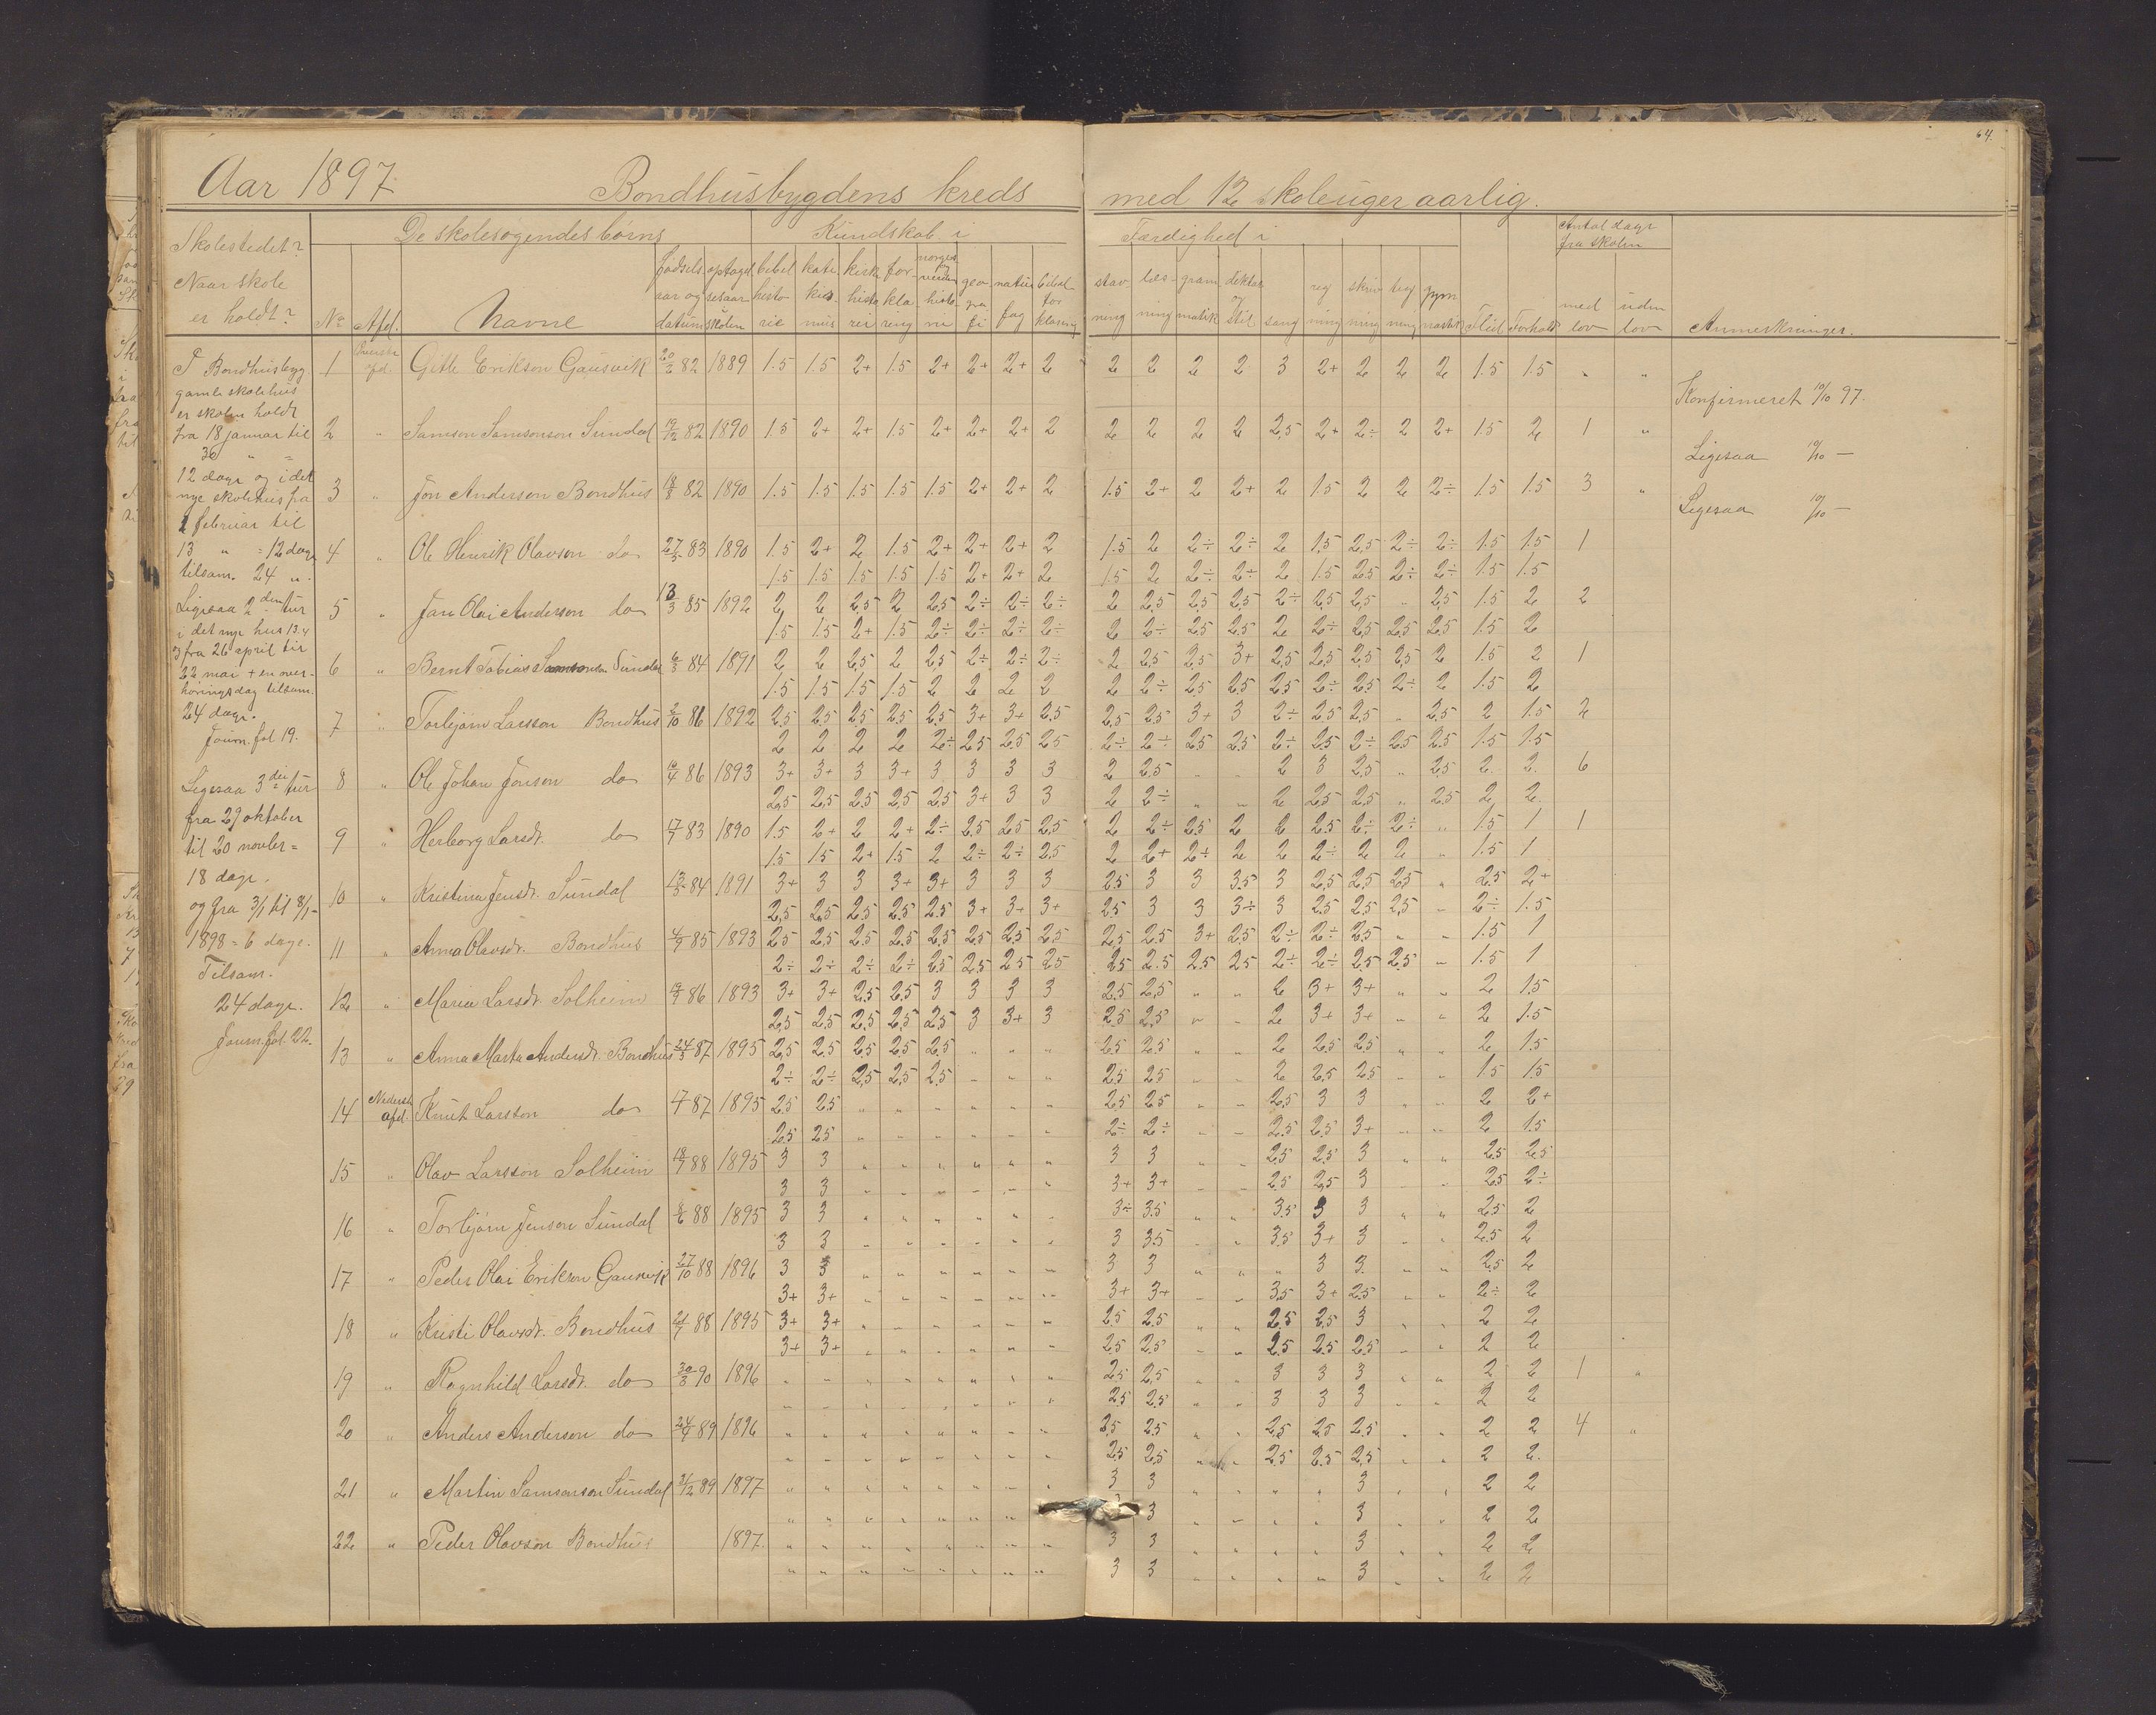 64.
Aar 1897. Bondhusbygdens kreds med 12 skoleuger aarlig.
Skolestedet? De skolesøgendes børns Kundskab i Færdighed i Antal dage fra skolen
Naar skole er holdt? No Afd. Navne fødselsaar og datum optagelsesaar skolen bibelhistorie katekismus kirkehistorie forklaring norges og verdenshistorie geografi naturfag bibelforklaring stavning læsning gramatik diktat og stil sang regning skrivning tegning gymnastik Flid Forhold med lov uden lov Anmerkninger.
I Bondhusbyg
gamle skolehus
er skolen holdt
fra 18 januar til
30 " =
12 dage og i det
nye skolehus fra
1 februar til
13 " = 12 dage
tilsam. 24 ".
Ligesaa 2den tur
i det nye hus 13.4
og fra 26 april til
22 mai + en over-
høringsdag tilsam.
24 dage.
Journ. fol 19.
Ligesaa 3die tur
fra 29 oktober
til 20 novber =
18 dage.
og fra 3/1 til 8/1
1898 = 6 dage.
Tilsam.
24 dage.
Journ. fol. 22.
1 Øverste afd. Gitle Erikson Gausvik 20/2 82 1889 1.5 1.5 2+ 1.5 2+ 2+ 2+ 2 2 2 2 2 3 2+ 2 2 2 1.5 1.5 " "
Konfirmeret 10/10 97.
2 " Samson Samsonson Sundal 19/12 82 1890 1.5 2+ 2+ 1.5 2+ 2+ 2+ 2 2 2 2 2 2,5 2+ 2÷ 2 2+ 1.5 2 1 "
Ligesaa 10/10 —
3 " Jon Anderson Bondhus 18/8 82 1890 1.5 1.5 1.5 1.5 1.5 2+ 2+ 2 1.5 2+ 2 2+ 2 1.5 2 2 2÷ 1.5 1.5 3 "
Ligesaa 10/10 —
4 " Ole Henrik Olavson do 27/3 83 1890 1.5 2+ 2 1.5 2+ 2+ 2+ 2 1.5 2 2÷ 2÷ 2 1,5 2,5 2÷ 2÷ 1.5 1.5 1
1.5 1.5 1.5 1.5 1.5 2+ 2+ 2 1.5 2 2÷ 2÷ 2 1.5 2.5 2÷ 2÷ 1.5 1.5
5 " Jan Olai Anderson do 13/3 85 1892 2 2 2.5 2 2.5 2÷ 2÷ 2÷ 2 2,5 2.5 2.5 2÷ 2,5 2,5 " 2,5 1.5 2 2
1.5 1.5 2+ 1.5 2÷ 2÷ 2÷ 2÷ 2 2÷ 2.5 2.5 2 2÷ 2.5 2.5 2.5 1.5 2
6 " Bernt Tobias Samsonson Sundal 6/3 84 1891 2 2 2,5 2 2,5 2÷ 2÷ 2÷ 2 2,5 2.5 3+ 2,5 2,5 2,5 2,5 2 1.5 2 1
1.5 1.5 1.5 1.5 2 2 2 2 2 2÷ 2.5 2.5 2.5 2÷ 2.5 2÷ 2 1.5 2
7 " Torbjørn Larsson Bondhus 2/10 86 1892 2,5 2.5 2,5 2,5 2,5 3+ 3+ 2,5 2,5 2.5 3+ 3 2÷ 2.5 2.5 " 2,5 2 1.5 2
2 2 2 2 2÷ 2.5 2.5 2.5 2÷ 2÷ 2.5 2.5 2÷ 2.5 2÷ 2.5 2.5 1.5 1.5
8 " Ole Johan Jonson do 10/4 86 1893 3+ 3+ 3 3+ 3 3 3 3 2 2.5 " " 2 3 2.5 " 2.5 2 2 6
2.5 2,5 2.5 2,5 2,5 3+ 3 3 2 2÷ " " 2 2.5 2.5 " 2.5 2 2
9 " Herborg Larsdt. do 17/7 83 1890 1.5 2+ 2 2+ 2÷ 2.5 2.5 2.5 2 2÷ 2.5 2 2 2.5 2÷ 2÷ " 1.5 1 1
1.5 1.5 2+ 1.5 2 2÷ 2÷ 2.5 2 2+ 2÷ 2 2 2÷ 2 2 " 1.5 1
10 " Kristina Jensdt. Sundal 13/3 84 1891 3+ 3 3 3+ 3+ 3 3 3 2.5 3 3 3.5 3 2.5 2.5 2.5 " 2.5 2+
2,5 2,5 2.5 2.5 2.5 3+ 3+ 3+ 2.5 3 3 3÷ 3 2.5 2.5 2,5 " 2÷ 1.5
11 " Anna Olavsdt. Bondhus 4/9 85 1893 2.5 2,5 2,5 2,5 2,5 2,5 2,5 2.5 2.5 2.5 3+ 2.5 2÷ 2÷ 2.5 " " 1.5 1
2÷ 2÷ 2÷ 2÷ 2.5 2.5 2.5 2.5 2.5 2.5 2.5 2.5 2÷ 2÷ 2.5 2.5 " 1.5 1
12 " Maria Larsdt Solheim 19/9 86 1893 3+ 3+ 2.5 2.5 3 3 3 3 2.5 2,5 " " 2 3+ 3+ " " 2 1.5
2,5 2.5 2,5 2,5 2,5 3 3+ 3 2.5 2.5 " " 2 3+ 3+ " " 2 1.5
13 " Anna Marta Andersdt. Bondhus 24/3 87 1895 2,5 2.5 2.5 2.5 2.5 " " " 2.5 2.5 " " 2 2.5 2.5 " " 2 1.5
2÷ 2÷ 2,5 2,5 2.5 " " " 2.5 2.5 " " 2 2.5 2.5 " " 1.5 1.5
14 Nederste afd. Knut Larsson do 87 1895 2.5 2.5 " " " " " " 2.5 2.5 " " 2.5 3 3 " " 2 2+
2.5 2.5 " " " " " " 2÷ 2÷ " " 2.5 2.5 3+ " " 2 1.5
15 " Olav Larsson Solheim 18/7 88 1895 3 3 " " " " " " 3 3 " " 2,5 2.5 3 " " 2.5 2.5
3 3 " " " " " " 3+ 3+ " " 2.5 2,5 3 " " 2.5 2÷
16 " Torbjørn Jenson Sundal 8/6 88 1895 3 3 " " " " " " 3÷ 3.5 " " 3.5 3 3 " " 2.5 2
3 3 " " " " " " 3 3.5 " " 3.5 3+ 3 " " 2.5 2
17 " Peder Olai Erikson Gausvik 27/10 88 1896 3 3 " " " " " " 3 3 " " " 3 3 " " 2.5 2
3+ 3+ " " " " " " 3+ 3+ " " 3.5 3+ 2.5 " " 2÷ 2
18 " Kristi Olavsdt. Bondhus 21/7 88 1895 3+ 3+ " " " " " " 2.5 2.5 " " 2.5 2.5 3 " " 2 2
3+ 3+ " " " " " " 2.5 2.5 " " 2.5 2.5 2.5 " " 2 2
19 " Ragnhild Larsdt. do 30/3 90 1896 " " " " " " " " 2.5 2,5 " " 3 3 3 " " 2 2 1 "
" " " " " " " " 2.5 2.5 " " 3 3 3 " " 2 2
20 " Anders Anderson do 24/9 89 1896 " " " " " " " " 2,5 2.5 " " 2,5 2.5 2.5 " " 2 2 4 "
" " " " " " " " 2,5 2,5 " " 2.5 2.5 2,5 " " 2 2
21 " Martin Samsonson Sundal 31/12 89 1897 " " " " " " " " 3 3 " " " " 3 " " 2 2
" " " " " " " " 3 " " " " 3 " " 2 2
22 " Peder Olavson Bondhus 1897. " " " " " " " " 3 3 " " " " 3 " " 2 2
" " " " " " " " 3 3 " " " " 3 " " 2 2